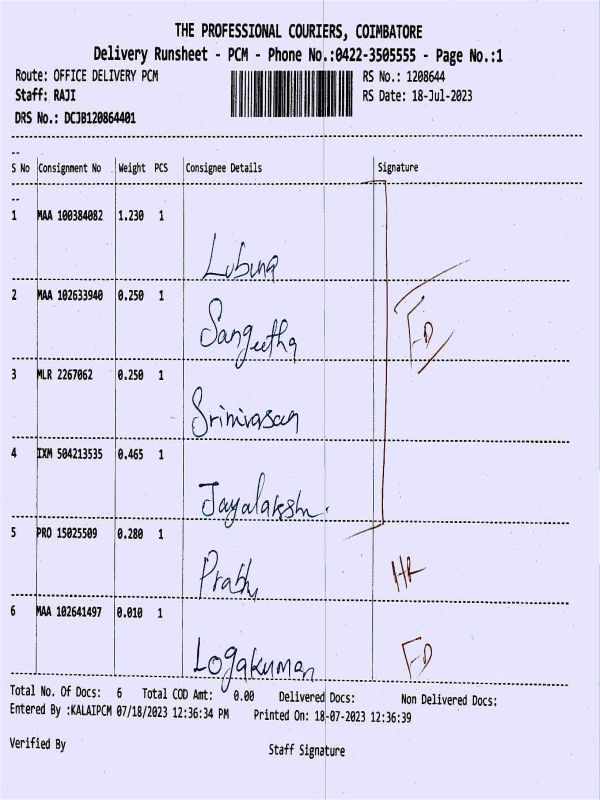 THE PROFESSIONAL COURIERS, COIMBATORE
Delivery Runsheet - PCM - Phone No.:0422-3505555 - Page No.:1
Route: OFFICE DELIVERY PCM RS No.: 1208644
Staff: RAJI RS Date: 18-Jul-2023
DRS No.: DCJB120864401
S No Consignment No Weight PCS Consignee Details Signature
1 MAA 100384082 1.230 1
Lubuna
2 MAA 102633940 0.250 1
Sangeetha ED
3 MLR 2267062 0.250 1
Srinivasan
4 IXM 504213535 0.465 1
Jayalakshm.
5 PRO 15025509 0.280 1
Prabhu HR
6 MAA 102641497 0.010 1
Logakumar ED
Total No. Of Docs: 6 Total COD Amt: 0.00 Delivered Docs: Non Delivered Docs:
Entered By :KALAIPCM 07/18/2023 12:36:34 PM Printed On: 18-07-2023 12:36:39
Verified By Staff Signature